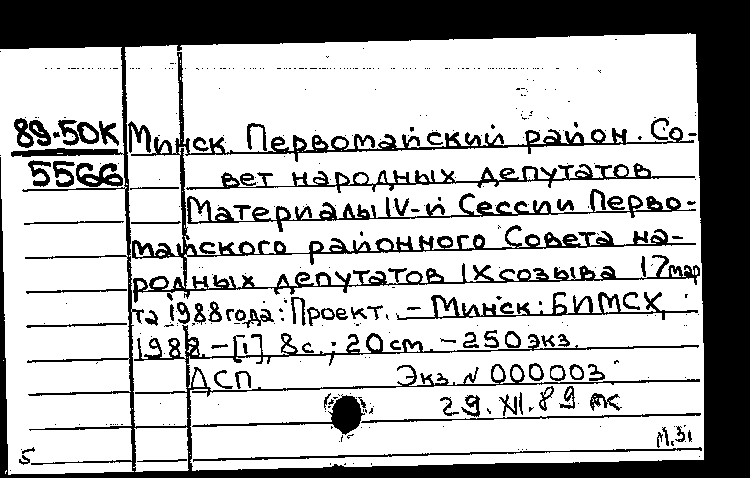 89-50К Минск. Первомайский район. Со-
5566 вет народных депутатов
Материалы IV-й Сессии Перво-
майского районного Совета на-
родных депутатов IX созыва 17 мар
та 1988 года: Проект. - Минск: БИМСХ,
1988. - [1], 8 с.; 20 см. - 250 экз.
ДСП. Экз. N 000003.
29.XII.89
5 М.31